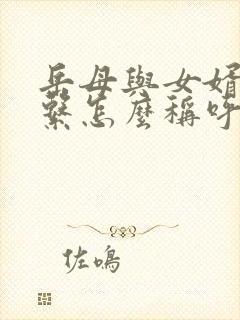 岳母與女婿
繫怎麼稱呼
佐鳴